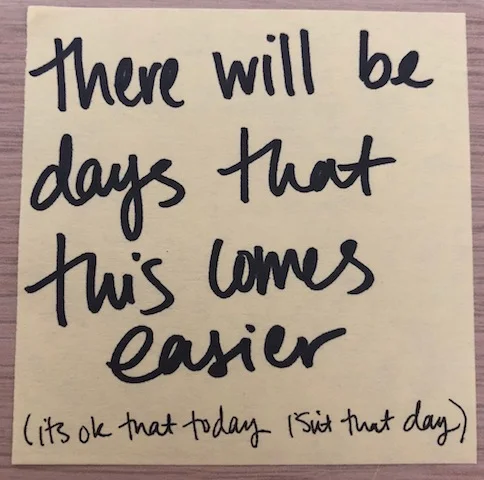 there will be
days that
this comes
easier
(its ok that today isn't that day)